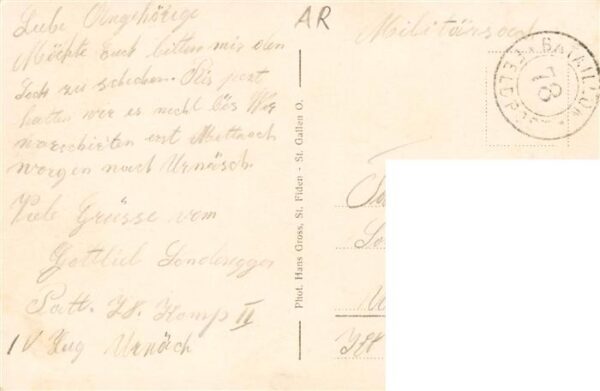 Liebe Angehörige
Möchte Euch bitten mir den
Sack zu schicken. Bis jetzt
hatten wir es nicht bös Wir
marschierten erst Mittwoch
morgen nach Urnäsch.
Viele Grüsse vom
Gottlieb Sonderegger
Batt. 78. Komp II
IV Zug Urnäch
Phot. Hans Gross, St. Fiden - St. Gallen O.
AR
Militärpost
FELDPOST * BATAILLON *
78